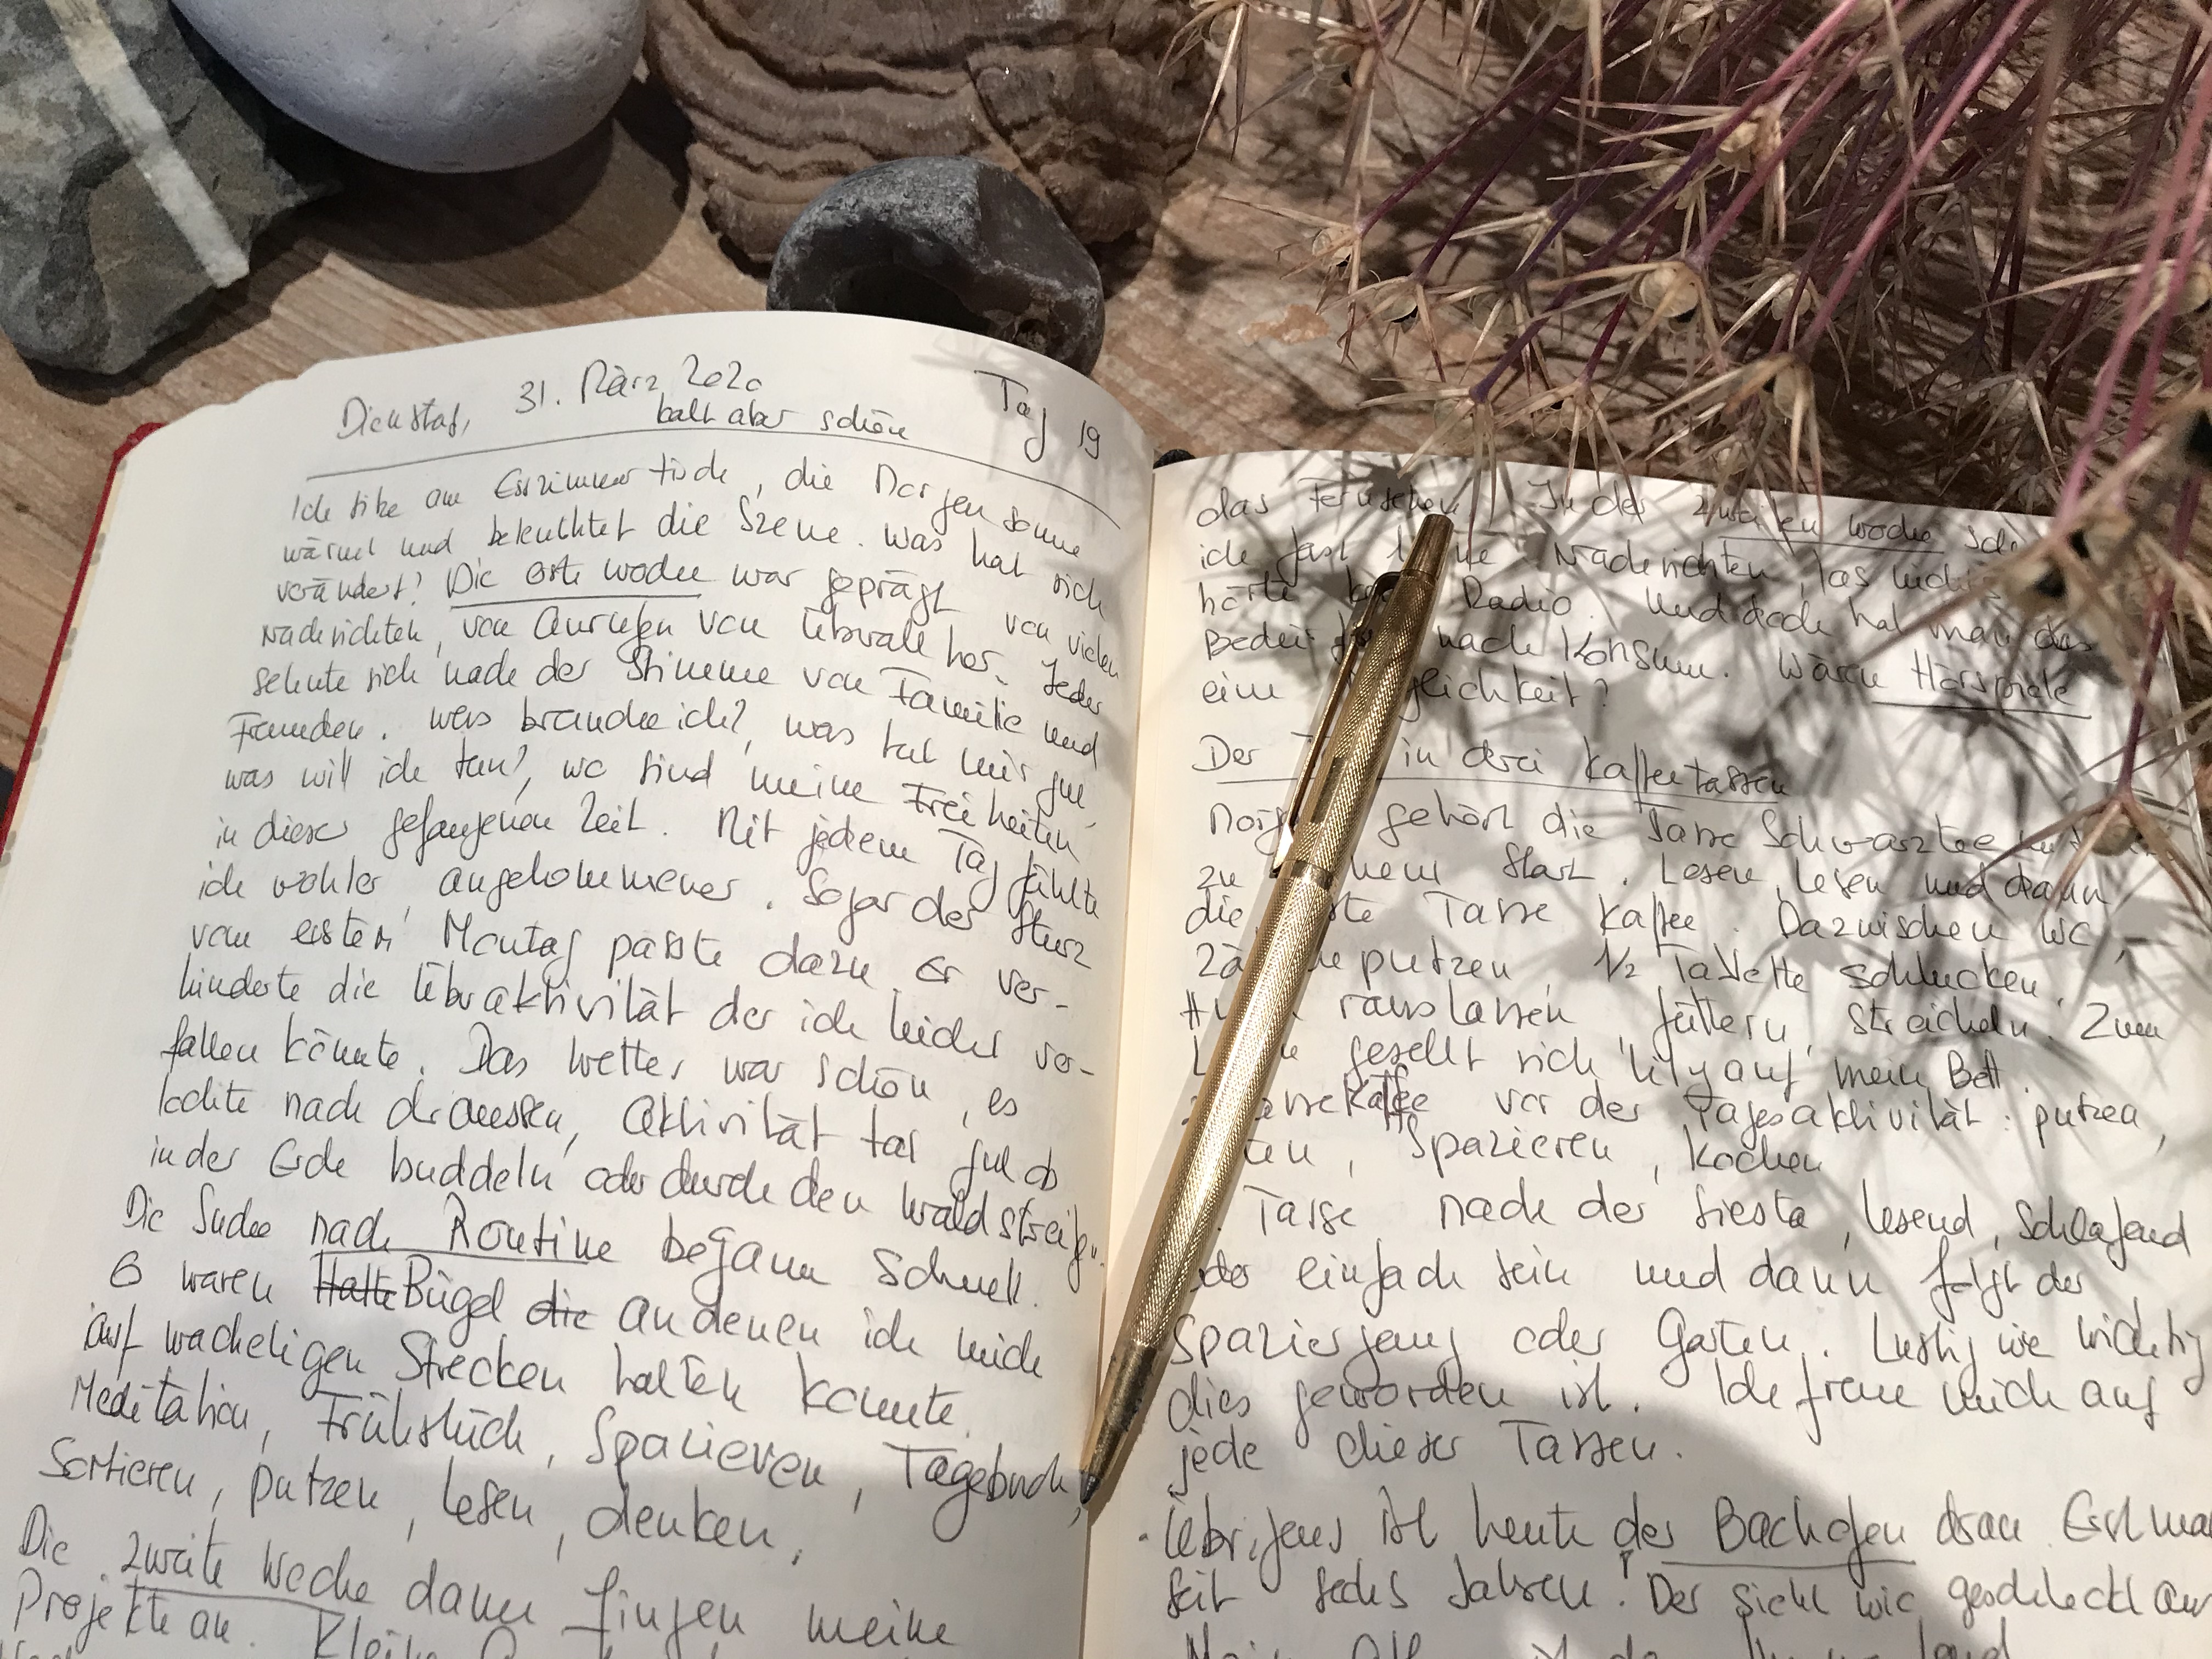 Dienstag, 31. März 2020 Tag 19
kalt aber schön
Ich sitze am Esszimmertisch, die Morgensonne
wärmt und beleuchtet die Szene. Was hat sich
verändert? Die erste Woche war geprägt von vielen
Nachrichten, von Anrufen von überall her. Jeder
sehnte sich nach der Stimme von Familie und
Freunden. Was brauche ich?, was tut mir gut,
was will ich tun?, wo sind meine Freiheiten
in dieser gefangenen Zeit. Mit jedem Tag fühlte
ich wohler, angekommener. Sogar der Sturz
vom ersten Montag passte dazu. Er ver-
hinderte die Überaktivität der ich leider ver-
fallen könnte. Das Wetter war schön, es
lockte nach draussen, Aktivität tat gut ob
in der Erde buddeln oder durch den Wald streifen.
Die Suche nach Routine begann schnell.
Es waren Halte Bügel die an denen ich mich
auf wackeligen Strecken halten konnte.
Meditation, Frühstück, Spazieren, Tagebuch,
Sortieren, putzen, lesen, denken.
Die zweite Woche dann fingen meine
Projekte an. Kleine
das Fernsehen. In der zweiten Woche
ich fast Nachrichten, las nichts
hörte Radio. Und doch hat man das
nach Konsum. Wären Hörspiele
eine
Der in drei Kaffeetassen
gehört die Tasse Schwarztee
zu Start. Lesen, lesen und dann
die Tasse Kaffee. Dazwischen WC,
putzen, 1/2 Tablette schlucken,
rauslassen, füttern, streicheln. Zum
gesellt sich Lily auf mein Bett.
Kaffee vor der Tagesaktivität: putzen,
Spazieren, Kochen
Tasse nach der Siesta, lesend, schlafend
oder einfach sein und dann folgt der
Spaziergang oder Garten. Lustig wie wichtig
dies geworden ist. Ich freue mich auf
jede dieser Tassen.
Übrigens ist heute der Backofen dran. Erstmals
seit sechs Jahren! Der sieht wie geschleckt aus